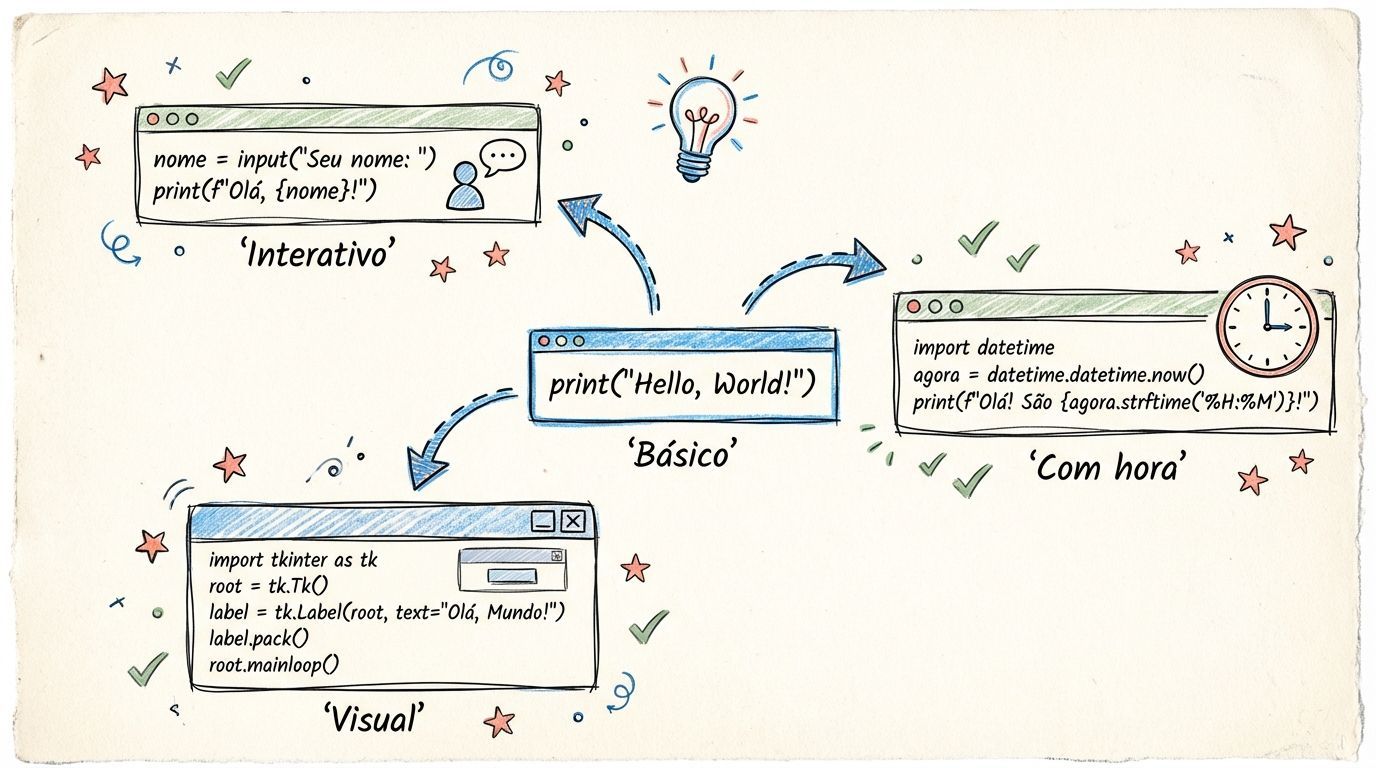 nome = input("Seu nome: ")
print(f"Olá, {nome}!")
'Interativo'
print("Hello, World!")
'Básico'
import datetime
agora = datetime.datetime.now()
print(f"Olá! São {agora.strftime('%H:%M')}!")
'Com hora'
import tkinter as tk
root = tk.Tk()
label = tk.Label(root, text="Olá, Mundo!")
label.pack()
root.mainloop()
'Visual'